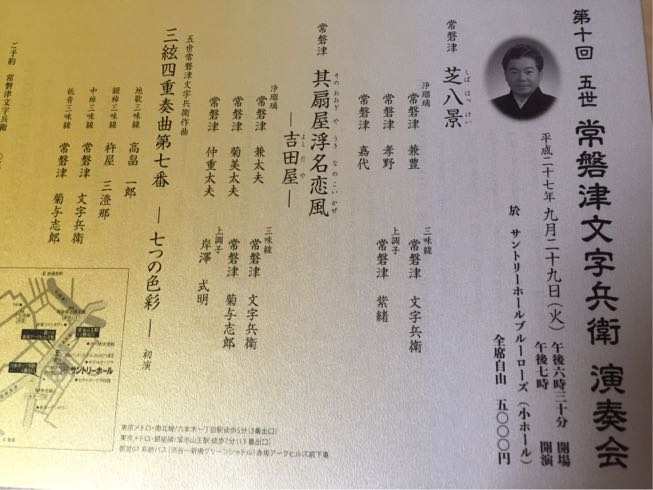 第十回 五世 常磐津文字兵衛 演奏会
平成二十七年 九月二十九日（火） 午後六時三十分 開場
午後七時 開演
於 サントリーホールブルーローズ（小ホール）
全席自由 五〇〇〇円
常磐津 芝八景
しば はっ けい
浄瑠璃
常磐津 兼豊
常磐津 孝野
常磐津 嘉代
三味線
常磐津 文字兵衛
上調子
常磐津 紫緒
常磐津 其扇屋浮名恋風
その おおぎ や うき なの こい かぜ
―吉田屋―
よし だ や
浄瑠璃
常磐津 兼太夫
常磐津 菊美太夫
常磐津 仲重太夫
三味線
常磐津 文字兵衛
常磐津 菊与志郎
上調子
岸澤 式明
五世常磐津文字兵衛作曲
三絃四重奏曲第七番 ― 七つの色彩 ― 初演
地歌三味線 高畠 一郎
細棹三味線 杵屋 三澄那
中棹三味線 常磐津 文字兵衛
低音三味線 常磐津 菊与志郎
ご予約 常磐津文字兵衛
サントリーホール
東京メトロ・南北線「六本木一丁目駅」徒歩5分（3番出口）
東京メトロ・銀座線「溜池山王駅」徒歩7分（13番出口）
都営01系統バス（渋谷～新橋グリーンシャトル）赤坂アークヒルズ前下車